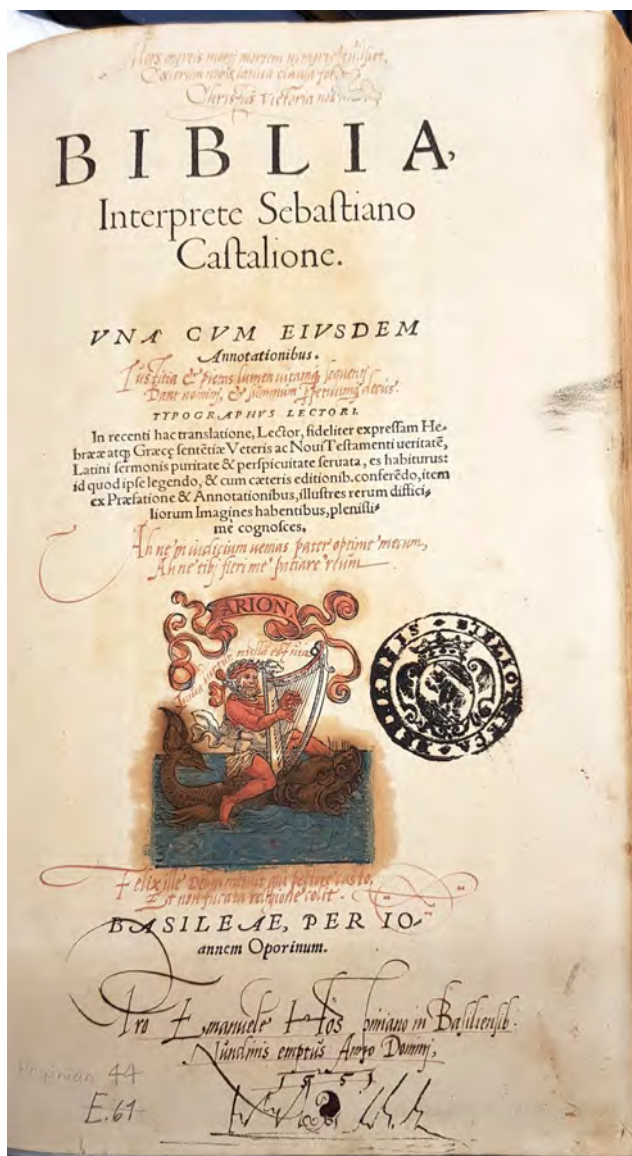 Mors mortis morti mortem nisi morte
Cœlorum nobis ianua clausa foret
Christus Victoria nos
BIBLIA,
Interprete Sebaſtiano
Caſtalione.
VNA CVM EIVSDEM
Annotationibus.
Iustitia & pietas lumen uitamq; sequenti
Dant nomini, & summum ꝑpetuumq; decus.
TYPOGRAPHVS LECTORI.
In recenti hac translatione, Lector, fideliter expreſſam He-
brææ atq; Græcę ſentẽtiæ Veteris ac Noui Teſtamenti ueritatẽ,
Latini ſermonis puritate & perſpicuitate ſeruata, es habiturus:
id quod ipſe legendo, & cum cæteris editionib. conferẽdo, item
ex Præfatione & Annotationibus, illuſtres rerum diffici-
liorum Imagines habentibus, pleniſſi-
mè cognoſces.
Ah ne in iudicium uenias pater optime mecum,
Ah ne tibi fieri me patiare reum
ARION.
nulla est uia
BIBLIOTHECA
Felix ille Deum qui pectore casto,
Et non fucata religione colit.
BASILEAE, PER IO-
annem Oporinum.
Pro Emanuele Hos piniano in Basiliensib.
Nundinis emptus Anno Domini,
1551
44
E.61